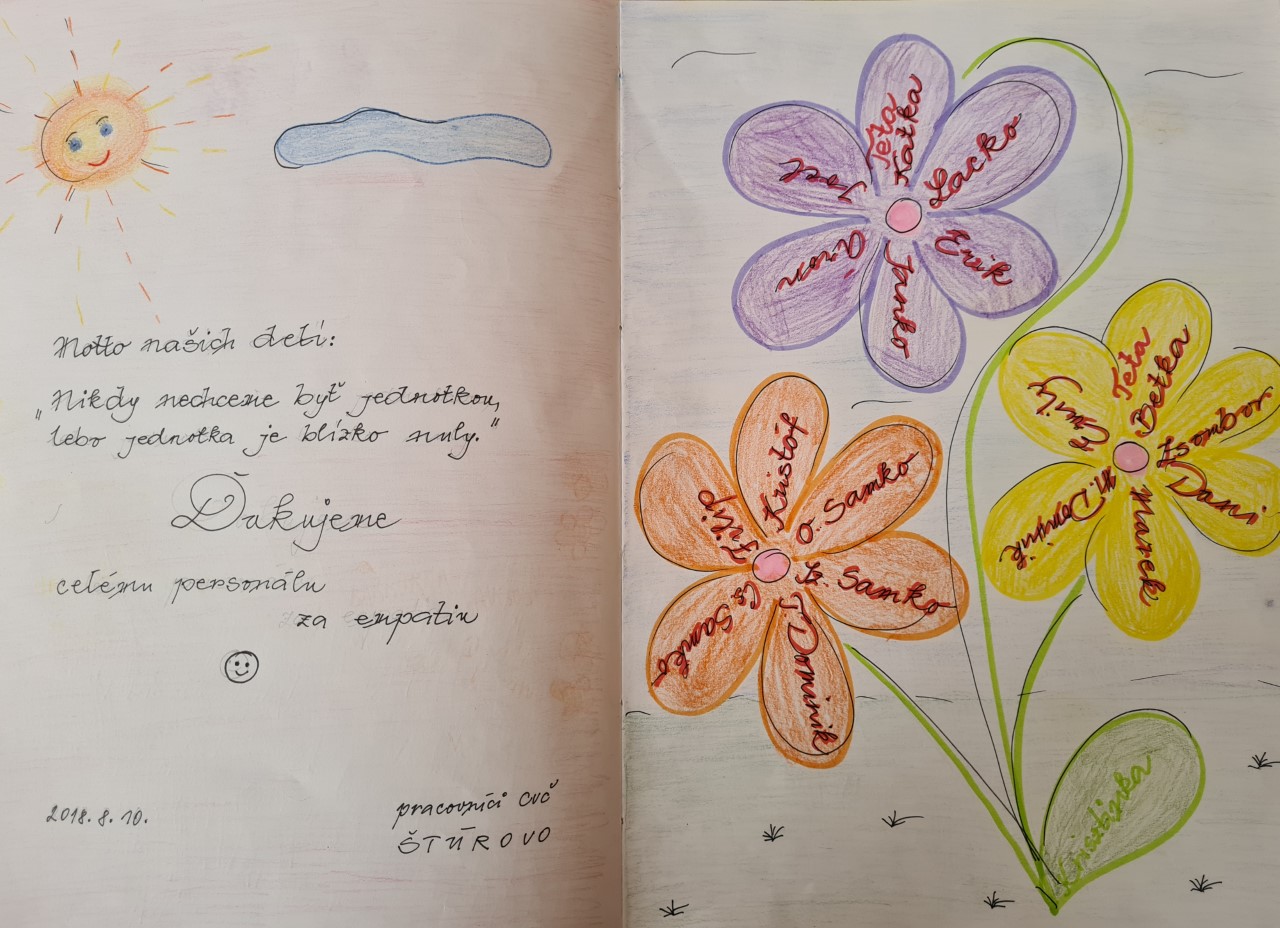 Motto našich detí:
„Nikdy nechceme byť jednotkou,
lebo jednotka je blízko nuly."
Ďakujeme
celému personálu
za empatiu
2018.8.10.
pracovníci CVČ
ŠTÚROVO
Teta
Katka
Lacko
Erik
Janko
Áron
Joel
Teta
Betka
Dani
Marek
M. Dominik
Emily
Krištóf
O. Samko
B. Samko
J. Dominik
G. Samko
Filip